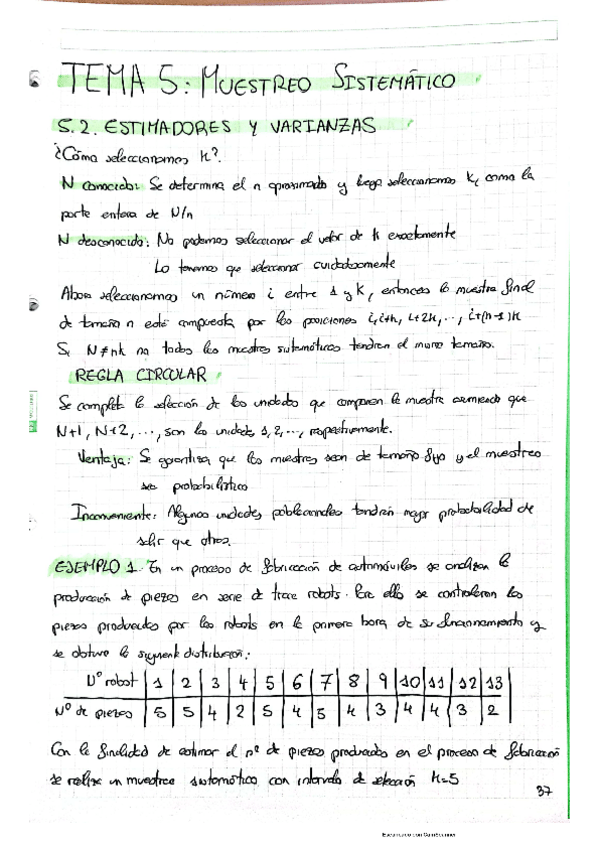 TEMA 5: MUESTREO SISTEMÁTICO
5.2. ESTIMADORES Y VARIANZAS
¿Cómo seleccionamos k?
N conocido: Se determina el n aproximado y luego seleccionamos k, como la
parte entera de N/n
N desconocido: No podemos seleccionar el valor de k exactamente
Lo tenemos que seleccionar cuidadosamente
Ahora seleccionamos un número i entre 1 y k, entonces la muestra final
de tamaño n está compuesta por las posiciones i, i+k, i+2k, ..., i+(n-1)k
Si N≠nk no todas las muestras sistemáticas tendrán el mismo tamaño.
REGLA CIRCULAR
Se completa la selección de las unidades que componen la muestra asumiendo que
N+1, N+2, ..., son las unidades 1, 2, ..., respectivamente.
Ventaja: Se garantiza que las muestras sean de tamaño fijo y el muestreo
sea probabilístico
Inconveniente: Algunas unidades poblacionales tendrán mayor probabilidad de
salir que otras.
EJEMPLO 1. En un proceso de fabricación de automóviles se analizan la
producción de piezas en serie de trece robots. Para ello se controlaron las
piezas producidas por los robots en la primera hora de su funcionamiento y
se obtuvo la siguiente distribución:
Nº robot 1 2 3 4 5 6 7 8 9 10 11 12 13
Nº de piezas 5 5 4 2 5 4 5 4 3 4 4 3 2
Con la finalidad de estimar el nº de piezas producidas en el proceso de fabricación
se realiza un muestreo sistemático con intervalo de selección k=5
37
Escaneado con CamScanner